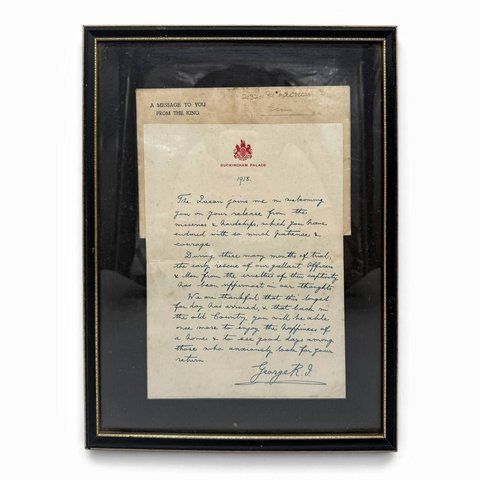 A MESSAGE TO YOU
FROM THE KING
BUCKINGHAM PALACE
1918.
The Queen joins me in welcoming
you on your release from the
miseries & hardships, which you have
endured with so much patience &
courage.
During these many months of trial,
the early rescue of our gallant Officers
& Men from the cruelties of their captivity
has been uppermost in our thoughts.
We are thankful that this longed
for day has arrived, & that back in
the old Country you will be able
once more to enjoy the happiness of
a home & to see good days among
those who anxiously look for your
return.
George R.I.